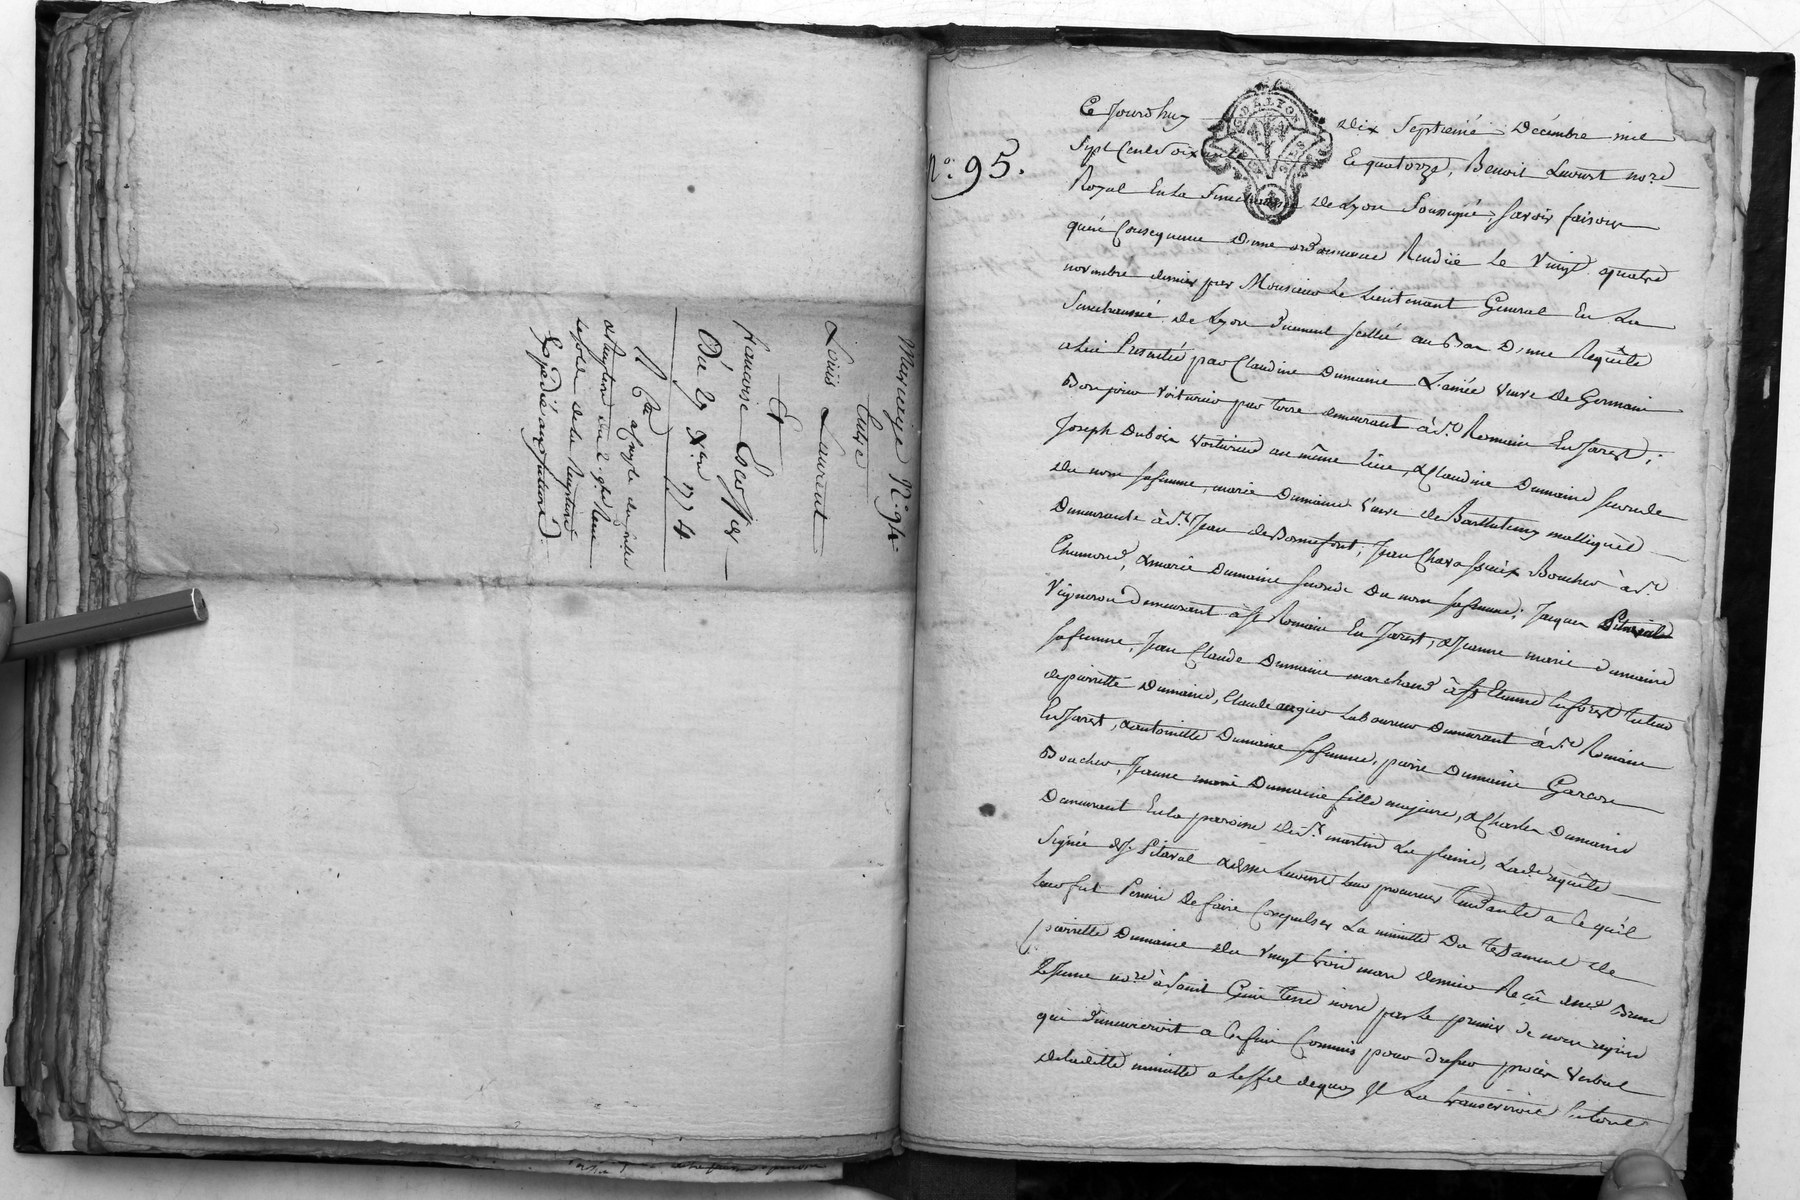 Mariage N. 94.
Entre
Louis Laurent
Et
francoise Escoffier
Du 27 Xbre 1774
Expédié aux futurs
GDE LYON
N.o 95.
Ce Jourdhuy dix Septieme Décembre mil
Sept Cent soixante Et quatorze, Benoit Louvrst no.re
Royal En la Senechaussee de Lyon Soussigné, savoir faisons
qu'en Consequence d'une ordonnance Rendüe Le Vingt quatre
novembre dernier par Monsieur Le Lieutenant General En La
Senechaussée de Lyon duement scellée au Bas D'une Requête
a Lui Presentée par Claudine Dumaine L'ainée veuve De Germain
Bonjour Voiturier par terre demeurant à St. Romain En Jarest;
Joseph Dubois Voiturier au même Lieu, & Claudine Dumaine seconde
du nom sa femme, marie Dumaine Veuve de Barthelemy matliquet
Demeurante à St. Jean de Bonnefont, Jean Chavassieux Boucher à St.
Chamond, & marie Dumaine seconde Du nom sa femme; Jacques Pitaval
Vigneron demeurant à St Romain En Jarest, & Jeanne marie dumaine
sa femme, Jean Claude Dumaine marchand à St Etienne En forest tuteur
de pierrette Dumaine, Claude augier Laboureur Demeurant à St. Romain
En Jarest, & antoinette Dumaine sa femme, pierre Dumaine Garcon
Boucher, Jeanne marie Dumaine fille majeure, & Charles Dumaine
Demeurant En la paroisse de St. martin La plaine, Lad.e requête
Signée Pitaval Leur procureur tendante a Ce qu'il
Leur fut Permis de faire Compulser La minutte Du testament de
pierrette Dumaine du vingt trois mars dernier Reçû me Brun
Le Jeune no.re à Saint Genis terre noire par Le premier de nous requis
qui demeureroit a Cet effet Commis pour dresser procès Verbal
de laditte minutte a L'effet dequoy Il La transcriroit